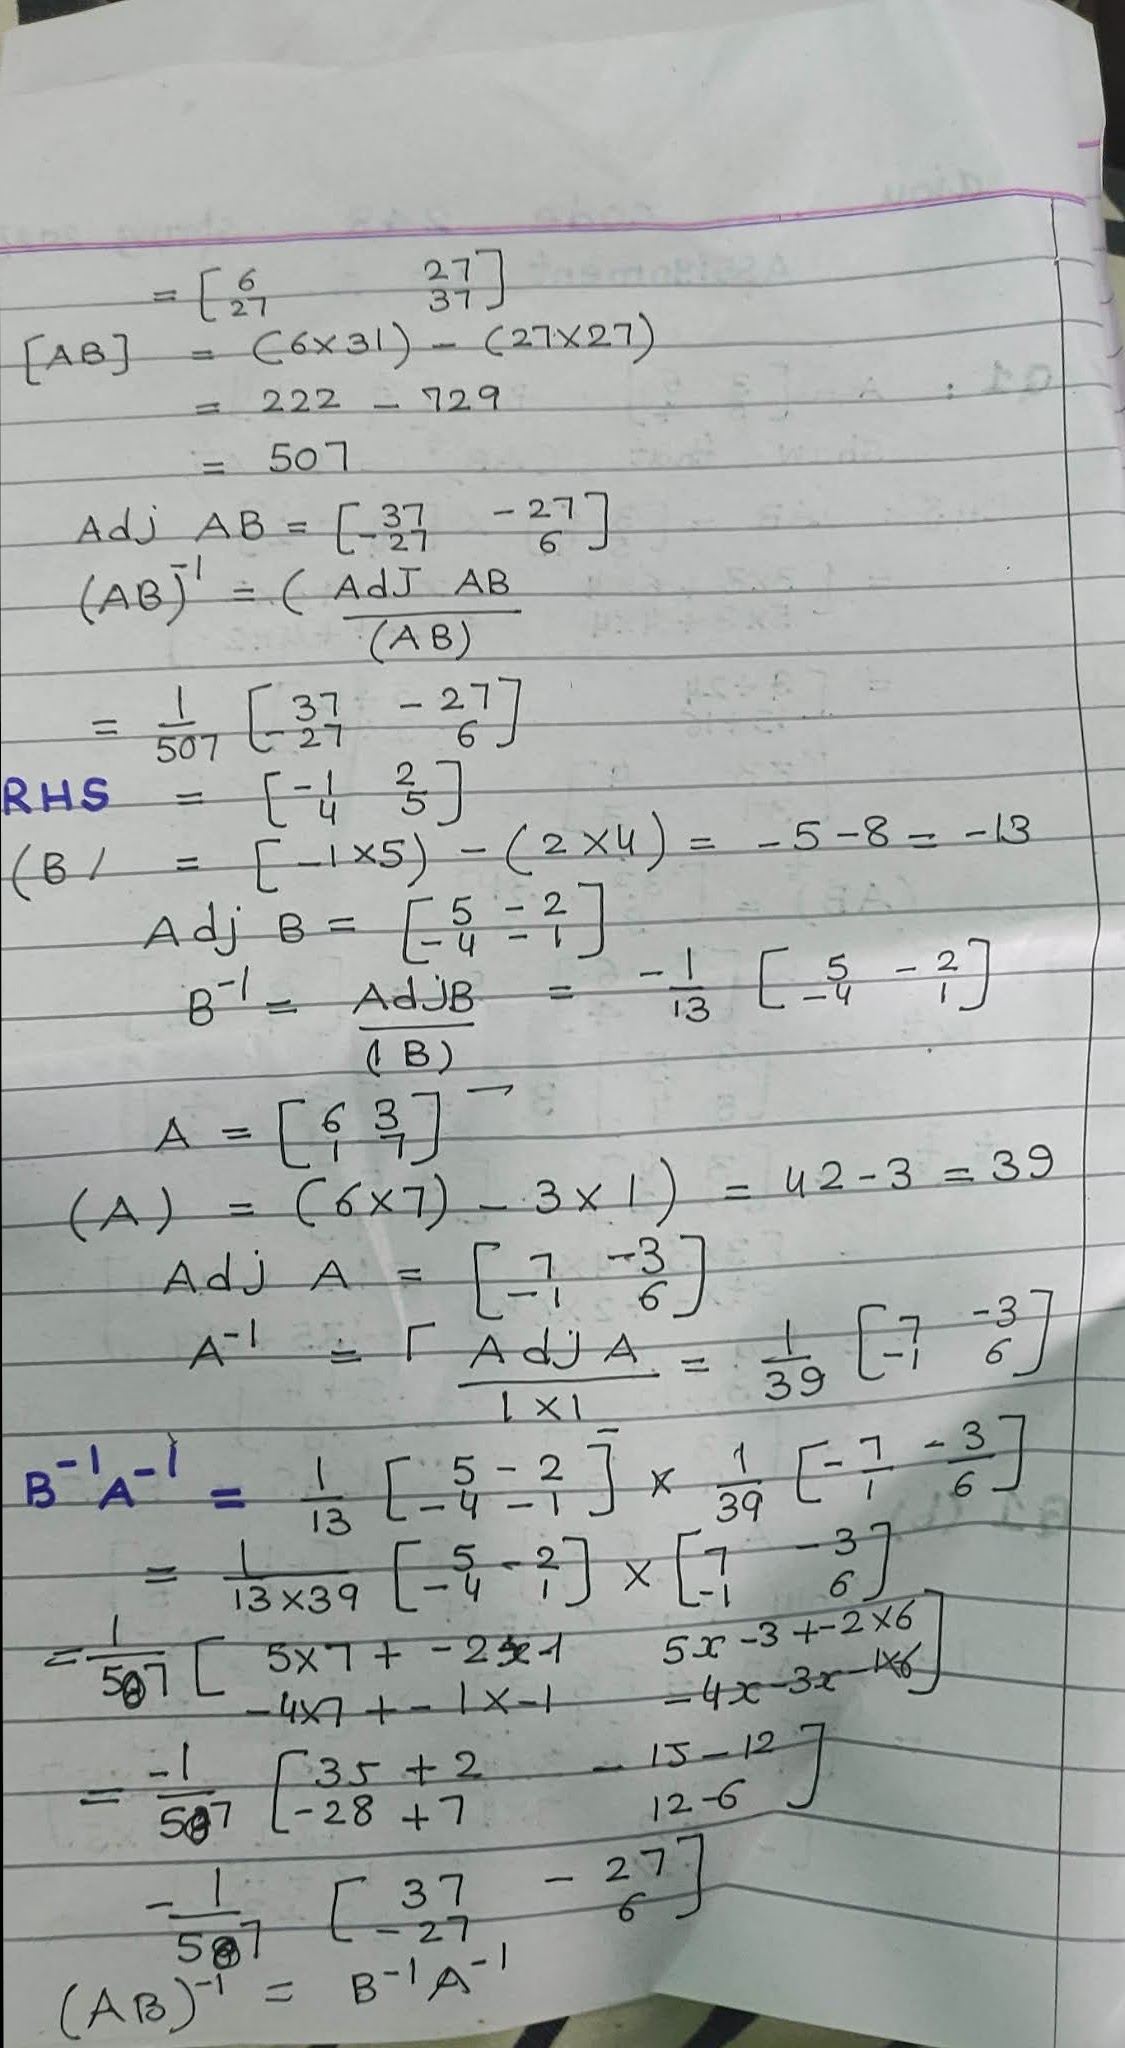 = [ 6 27 ]
27 37
[AB] = (6×31) - (27×27)
= 222 - 729
= 507
Adj AB = [ 37 -27 ]
-27 6
(AB)⁻¹ = ( AdJ AB
(AB)
= 1/507 [ 37 -27 ]
-27 6
RHS = [ -1 2 ]
4 5
(B/ = [-1×5) - (2×4) = -5-8 = -13
Adj B = [ 5 -2 ]
-4 -1
B⁻¹ = AdjB = -1/13 [ 5 -2 ]
(1B) -4 1
A = [ 6 3 ]
1 7
(A) = (6×7) - 3×1) = 42-3 = 39
Adj A = [ 7 -3 ]
-1 6
A⁻¹ = [ Adj A = 1/39 [ 7 -3 ]
1×1 -1 6
B⁻¹A⁻¹ = 1/13 [ 5 -2 ] × 1/39 [ -7 -3 ]
-4 -1 1 6
= 1/13×39 [ 5 -2 ] × [ 7 -3 ]
-4 1 -1 6
= 1/507 [ 5×7 + -2×-1 5×-3+-2×6 ]
-4×7 + -1×-1 -4×-3×-1×6
= -1/507 [ 35+2 -15-12 ]
-28+7 12-6
-1/507 [ 37 -27 ]
-27 6
(AB)⁻¹ = B⁻¹A⁻¹